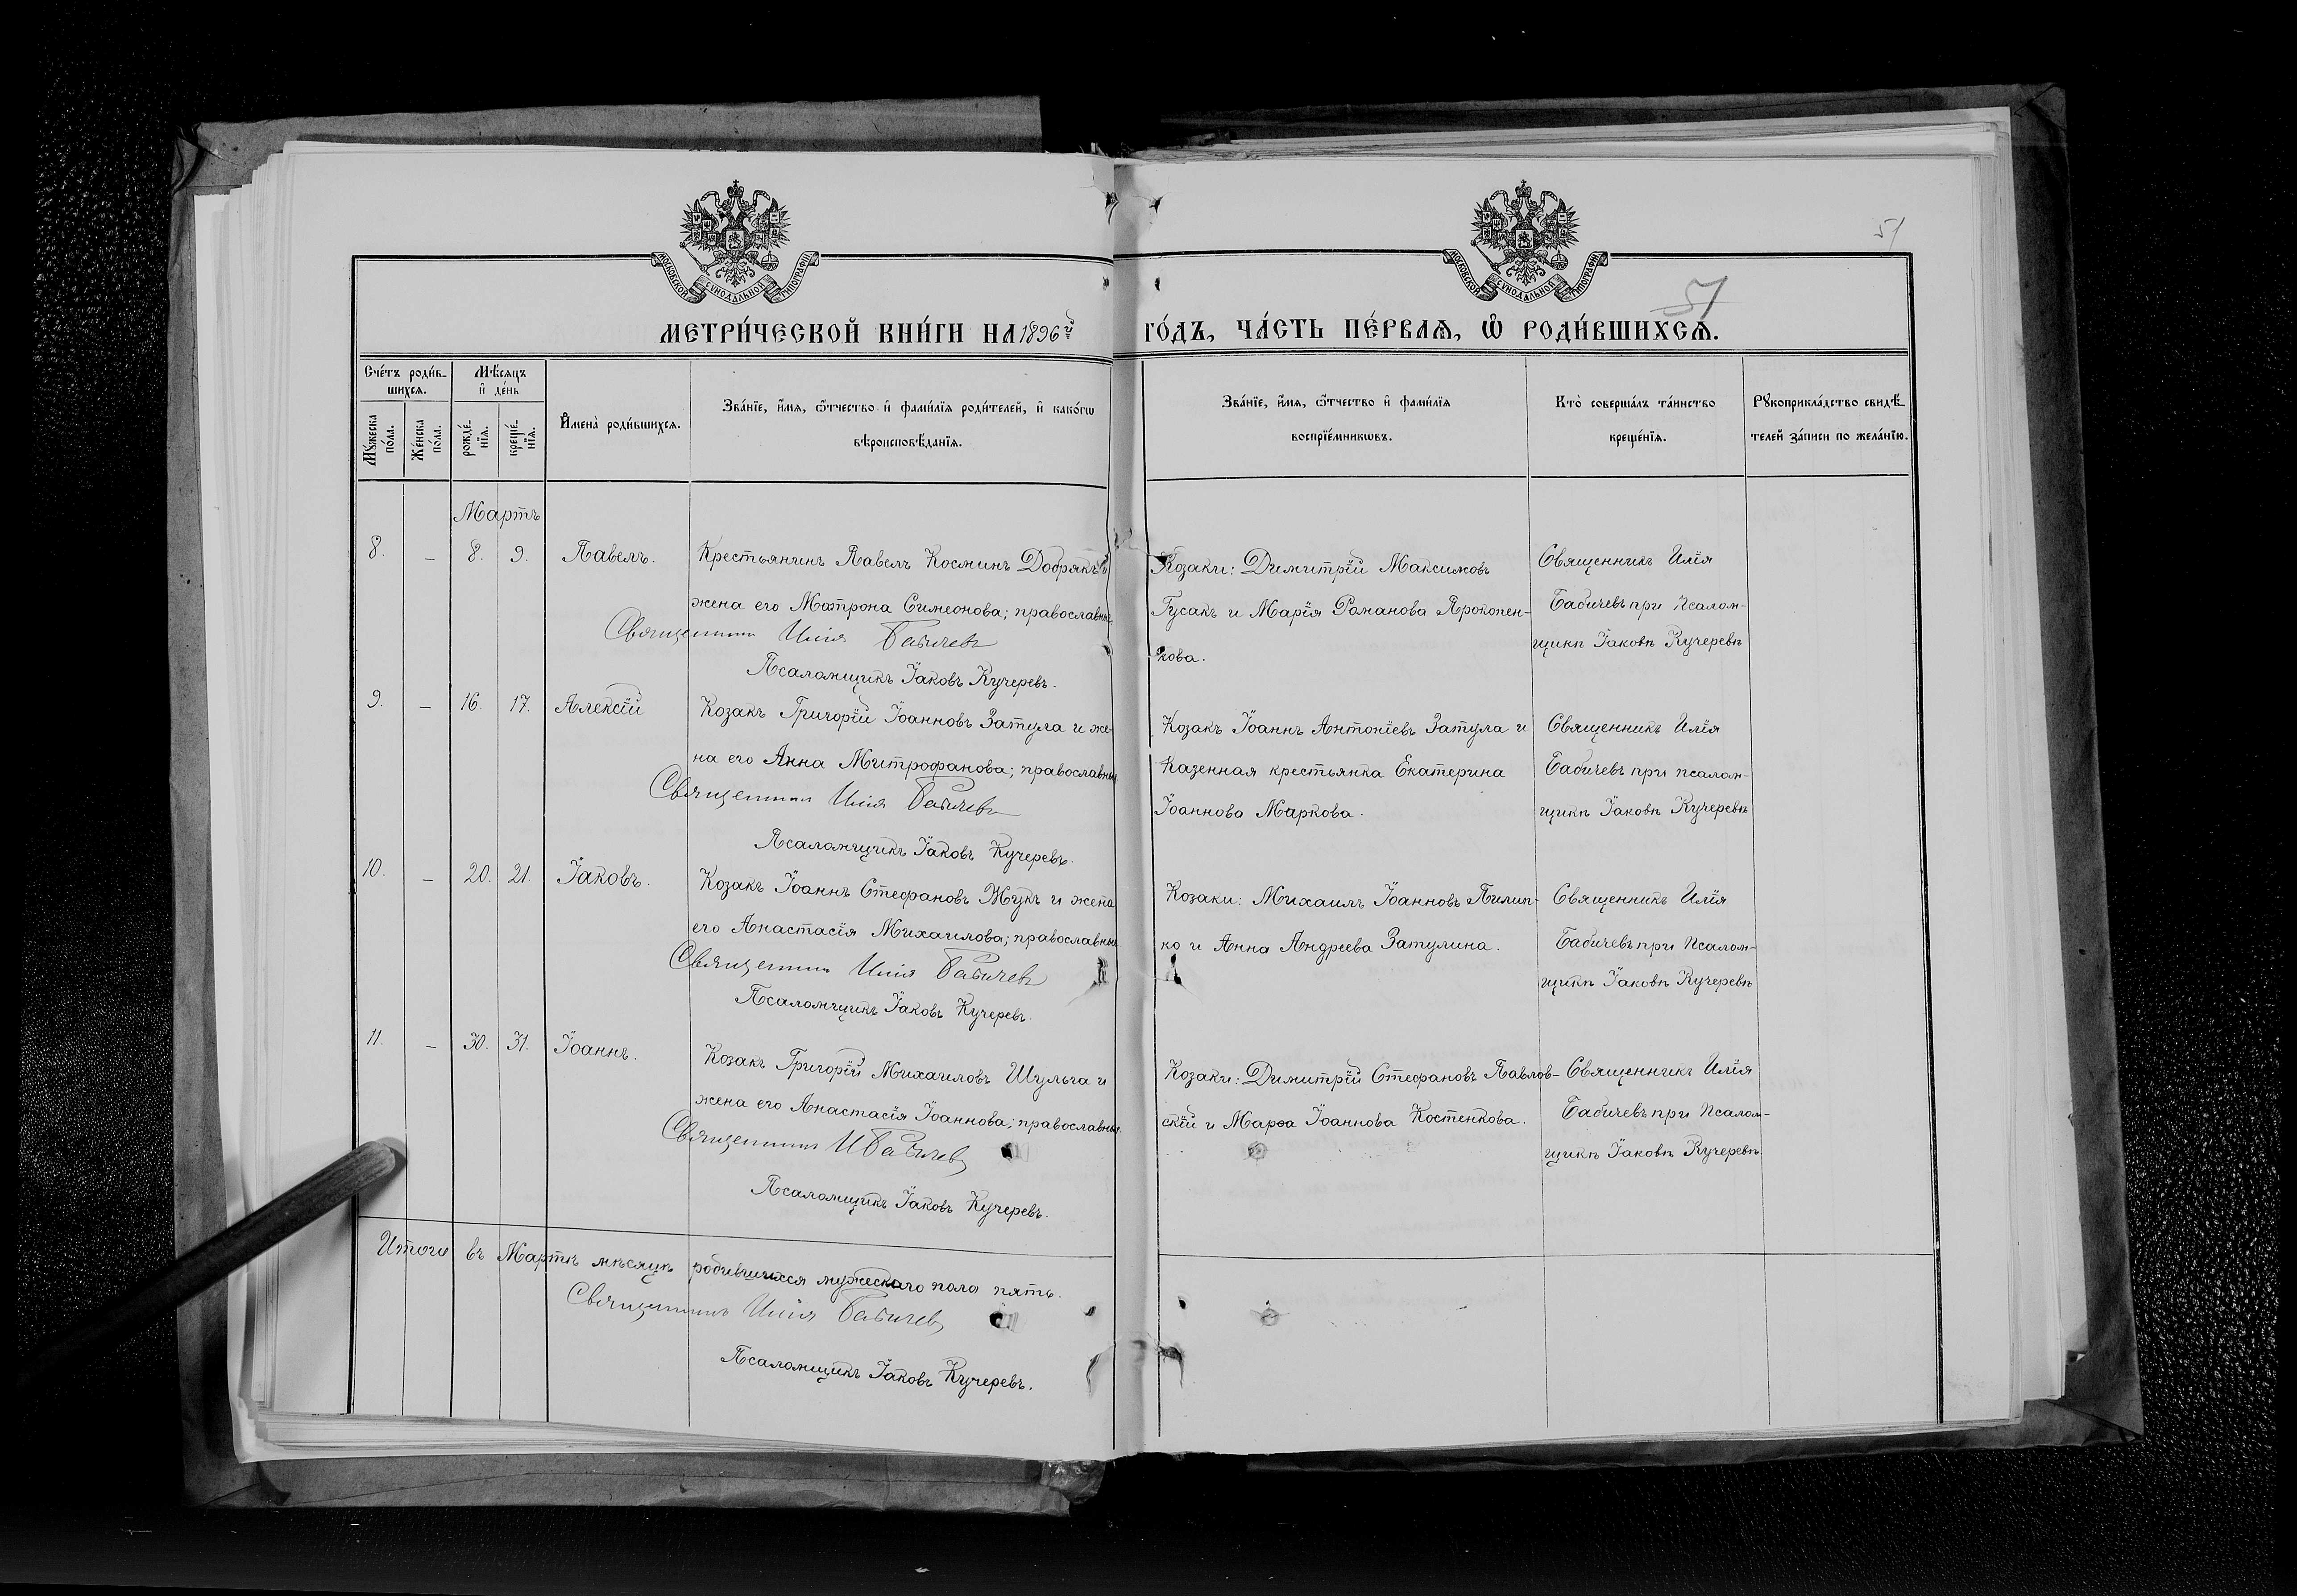 МОСКОВСКОЙ СѴНОДАЛЬНОЙ ТИПОГРАФІИ
МОСКОВСКОЙ СѴНОДАЛЬНОЙ ТИПОГРАФІИ
51
51
МЕТРИ́ЧЕСКОЙ КНИ́ГИ НА 1896й
ГО́ДЪ, ЧА́СТЬ ПЕ́РВАѦ, Ѡ҆ РОДИ́ВШИХСѦ.
Сче́тъ роди́в-
шихсѧ.
Мꙋ́жеска по́ла.
Же́нска по́ла.
Мѣ́сѧцъ
и҆ де́нь
рожде́-
нїѧ.
креще́-
нїѧ.
И҆мена̀ роди́вшихсѧ.
Зва́нїе, и҆́мѧ, ѻ҆́тчество и҆ фами́лїѧ роди́телей, и҆ како́гѡ
вѣроисповѣ́данїѧ.
Зва́нїе, и҆́мѧ, ѻ҆́тчество и҆ фами́лїѧ
воспрїе́мникѡвъ.
Кто̀ соверша́лъ та́инство
креще́нїѧ.
Рꙋкоприкла́дство свидѣ́-
телей за́писи по жела́нїю.
Мартъ
8. – 8. 9. Павелъ. Крестьянинъ Павелъ Косминъ Добрякъ и
жена его Матрона Симеонова; православные
Священникъ Илія Бабичевъ
Псаломщикъ Іаковъ Кучеревъ.
Козаки: Димитрій Максимовъ
Гусакъ и Марія Романова Прокопен-
кова.
Священникъ Илія
Бабичевъ при псалом-
щикѣ Іаковѣ Кучеревѣ
9. – 16. 17. Алексій Козакъ Григорій Іоанновъ Затула и же-
на его Анна Митрофанова; православные
Священникъ Илія Бабичевъ
Псаломщикъ Іаковъ Кучеревъ.
Козакъ Іоаннъ Антоніевъ Затула и
Казенная крестьянка Екатерина
Іоаннова Маркова.
Священникъ Илія
Бабичевъ при псалом-
щикѣ Іаковѣ Кучеревѣ
10. – 20. 21. Іаковъ. Козакъ Іоаннъ Стефановъ Жукъ и жена
его Анастасія Михаилова; православные
Священникъ Илія Бабичевъ
Псаломщикъ Іаковъ Кучеревъ.
Козаки: Михаилъ Іоанновъ Пилип-
ко и Анна Андреева Затулина.
Священникъ Илія
Бабичевъ при псалом-
щикѣ Іаковѣ Кучеревѣ
11. – 30. 31. Іоаннъ. Козакъ Григорій Михаиловъ Шульга и
жена его Анастасія Іоаннова; православные
Священникъ И Бабичевъ
Псаломщикъ Іаковъ Кучеревъ.
Козаки: Димитрій Стефановъ Павлов-
скій и Марѳа Іоаннова Костенкова.
Священникъ Илія
Бабичевъ при псалом-
щикѣ Іаковѣ Кучеревѣ
Итого въ Мартѣ мѣсяцѣ родившихся мужескаго пола пять.
Священникъ Илія Бабичевъ
Псаломщикъ Іаковъ Кучеревъ.